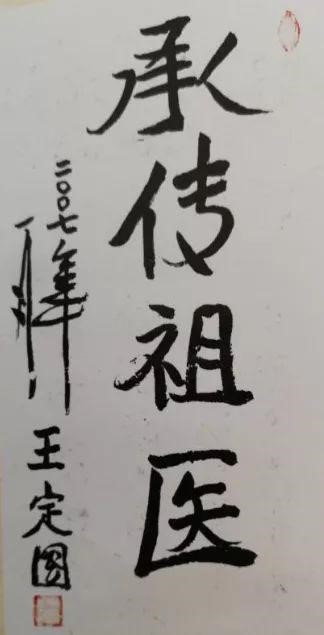 承传祖医
二〇〇七年
王定国